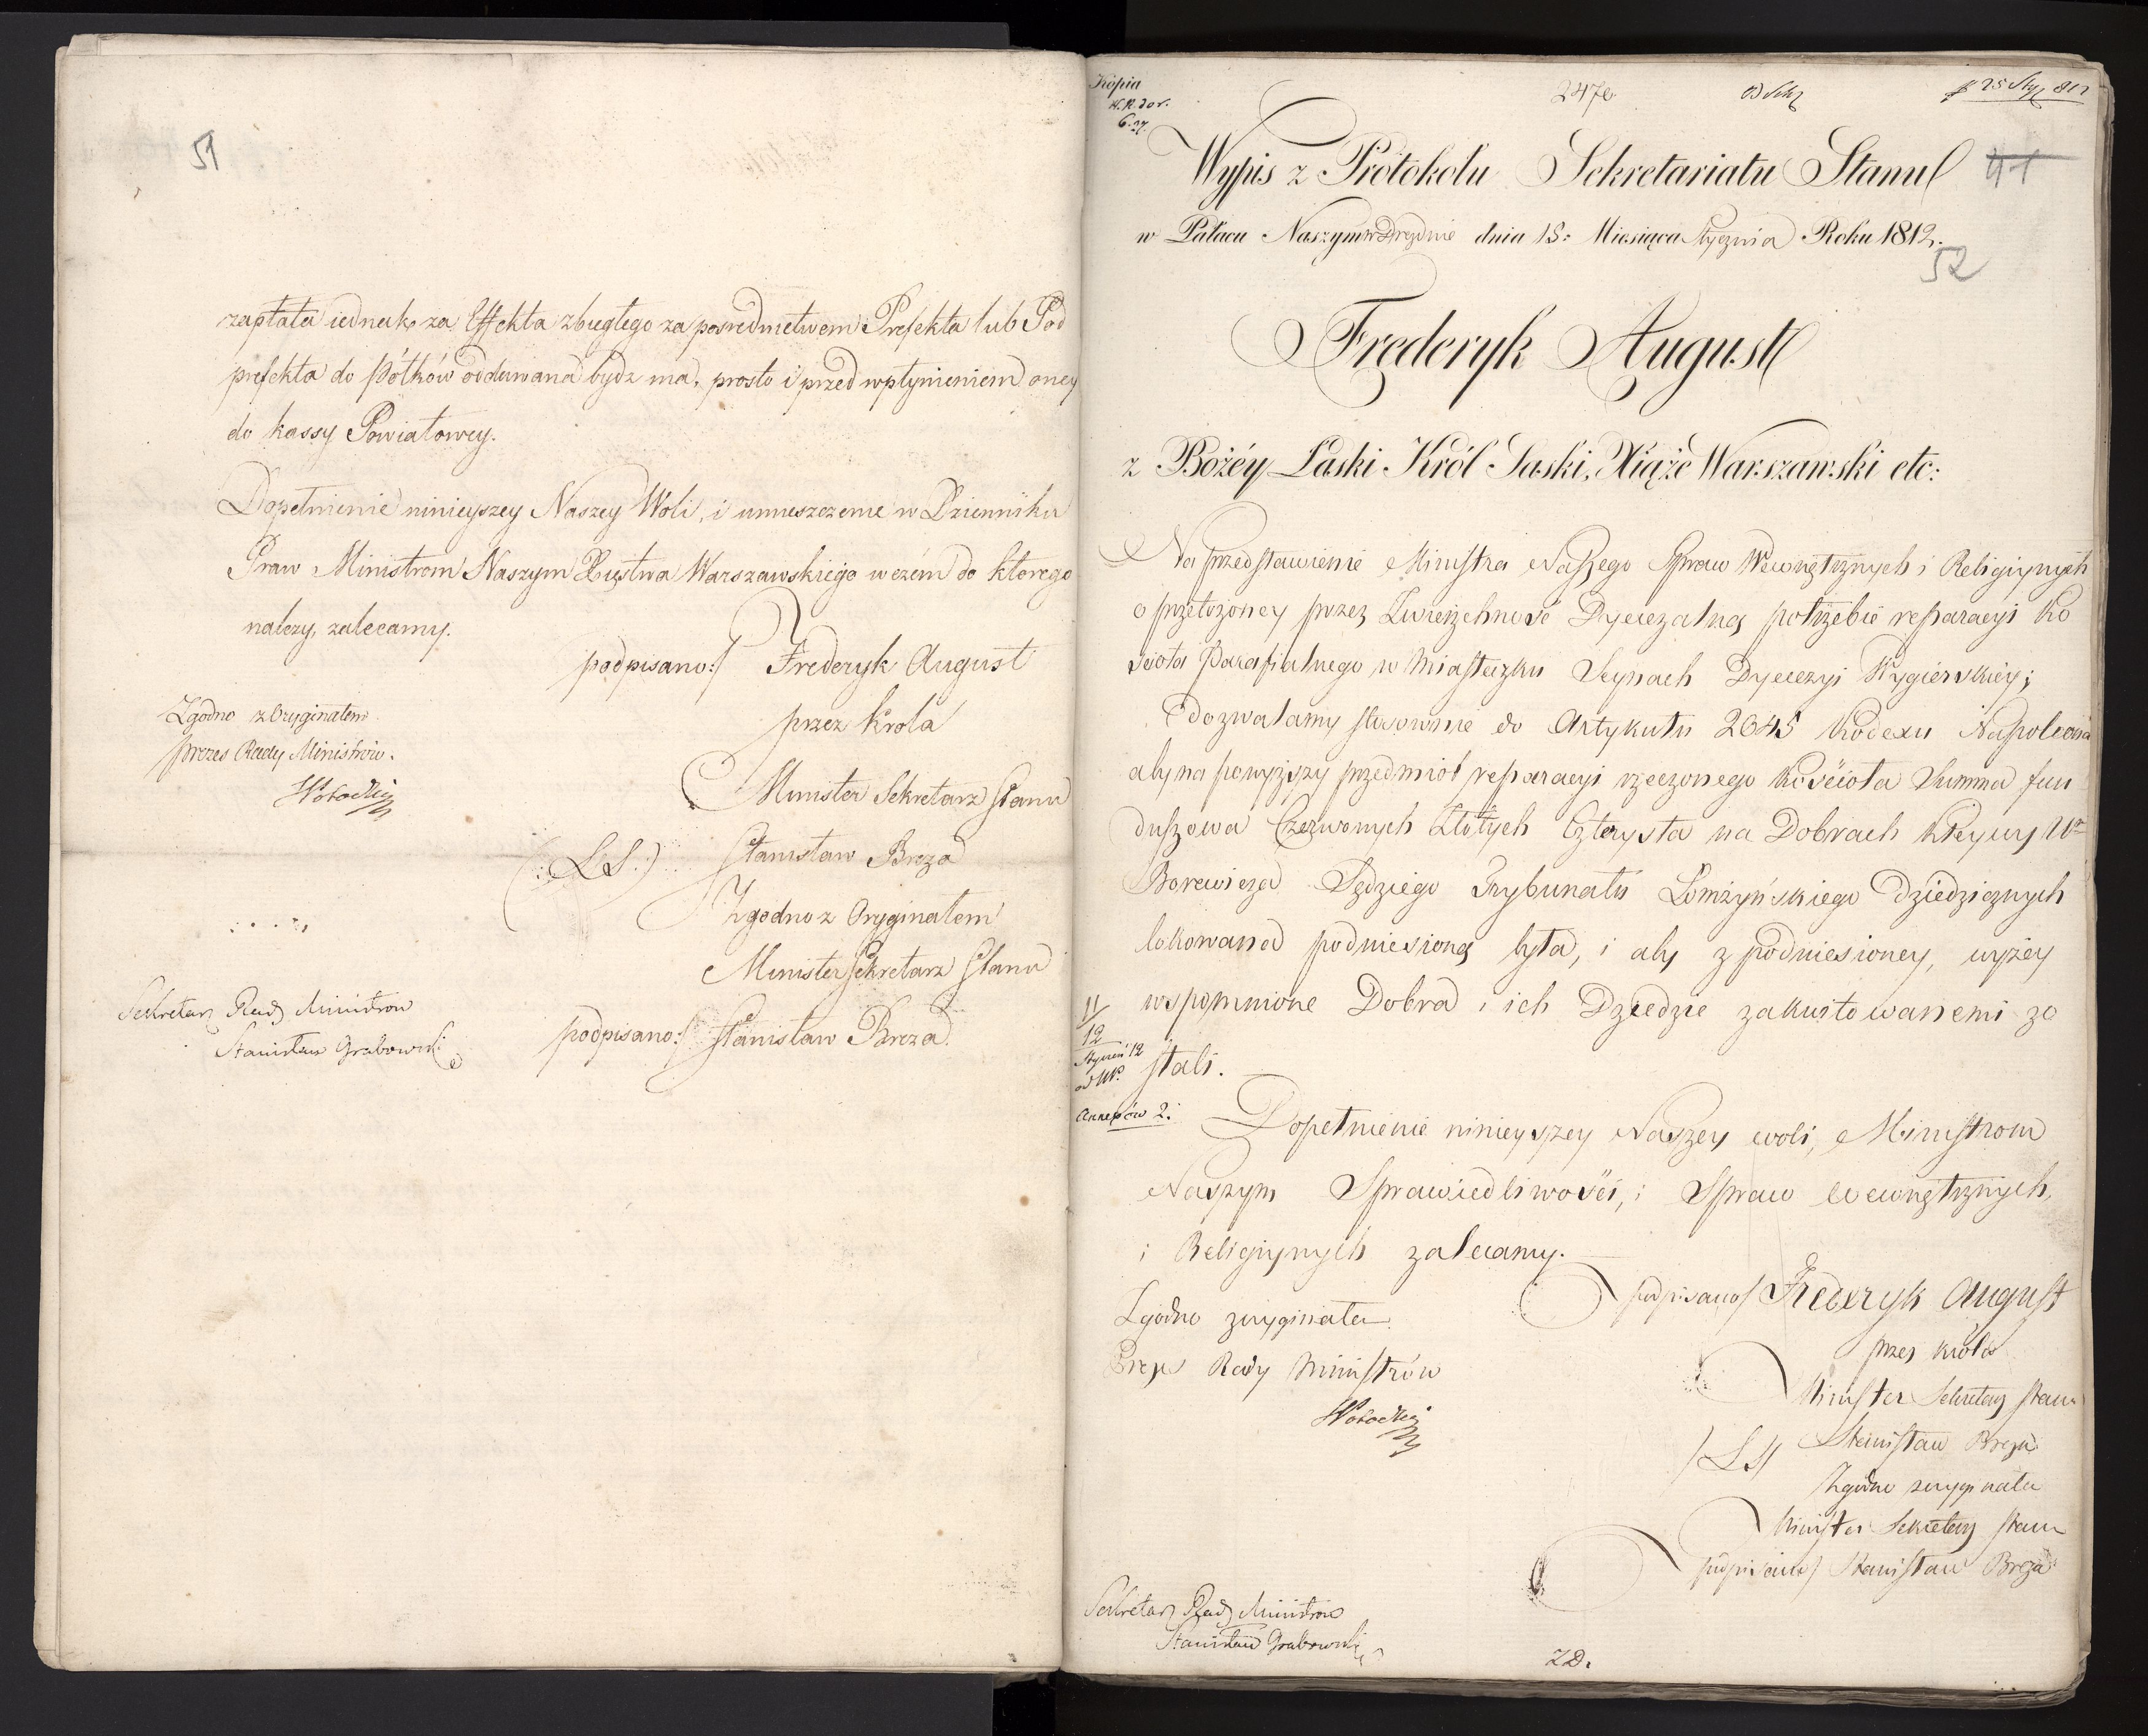 51
zapłata iednak za Effekta zbiegłego za posrednictwem Prefekta lub Pod
prefekta do półków oddawana bydz ma, prosto i przed wpłynieniem oney
do kassy Powiatowey.
Dopełnienie ninieyszey Naszey Woli, i umieszczenie w Dzienniku
Praw Ministrom Naszym Xięstwa Warszawskiego w czém do ktorego
nalezy, zalecamy.
podpisano:/ Frederyk August
przez Krola
Minister Sekretarz Stanu
(:LS:) Stanisław Breza
Zgodno z Oryginałem
Minister Sekretarz Stanu
podpisano:/ Stanisław Breza
Zgodno z Oryginałem
Prezes Rady Ministrów.
Sekretarz Rady Ministrow
Stanisław Grabowski
Kopia
247
25 Sty 812
Wypis z Protokołu Sekretariatu Stanu
41
w Pałacu Naszym w Dreźnie dnia 15: Miesiąca Stycznia Roku 1812.
52
Frederyk August
z Bożéy Łaski Król Saski, Xiążę Warszawski etc:
Na przedstawienie Ministra Naszego Spraw Wewnętrznych i Religiynych
o przełożoney przez Zwierzchność Dyecezalną potrzebie reparacyi Ko
scioła Parafialnego w Miasteczku Seynach Dyecezyi Wygierskiéy;
dozwalamy stosownie do Artykułu 2045 Kodexu Napoleona
aby na powyższy przedmiot reparacyi rzeczonego Kościoła Summa fun
duszowa Czerwonych Złotych Czterysta na Dobrach
Borewicza Sędziego Trybunału Łomżyńskiego dziedzicznych
lokowana podniesioną była, i aby z podniesioney, wyżey
wspomnione Dobra i ich Dziedzic zakwitowanemi zo
stali.
11/12
Styczeń 12
Annexów 2.
Dopełnienie ninieyszey Naszey woli, Ministrom
Naszym Sprawiedliwości, i Spraw Wewnętrznych,
i Religiynych zalecamy.
podpisano/ Frederyk August
przez króla
Minister Sekretarz Stanu
/LS/ Stanisław Breza
Zgodno z oryginałem
Minister Sekretarz Stanu
podpisano/ Stanisław Breza
Zgodno z oryginałem
Prezes Rady Ministrów
Sekretarz Rady Ministrow
Stanisław Grabowski
ZD.